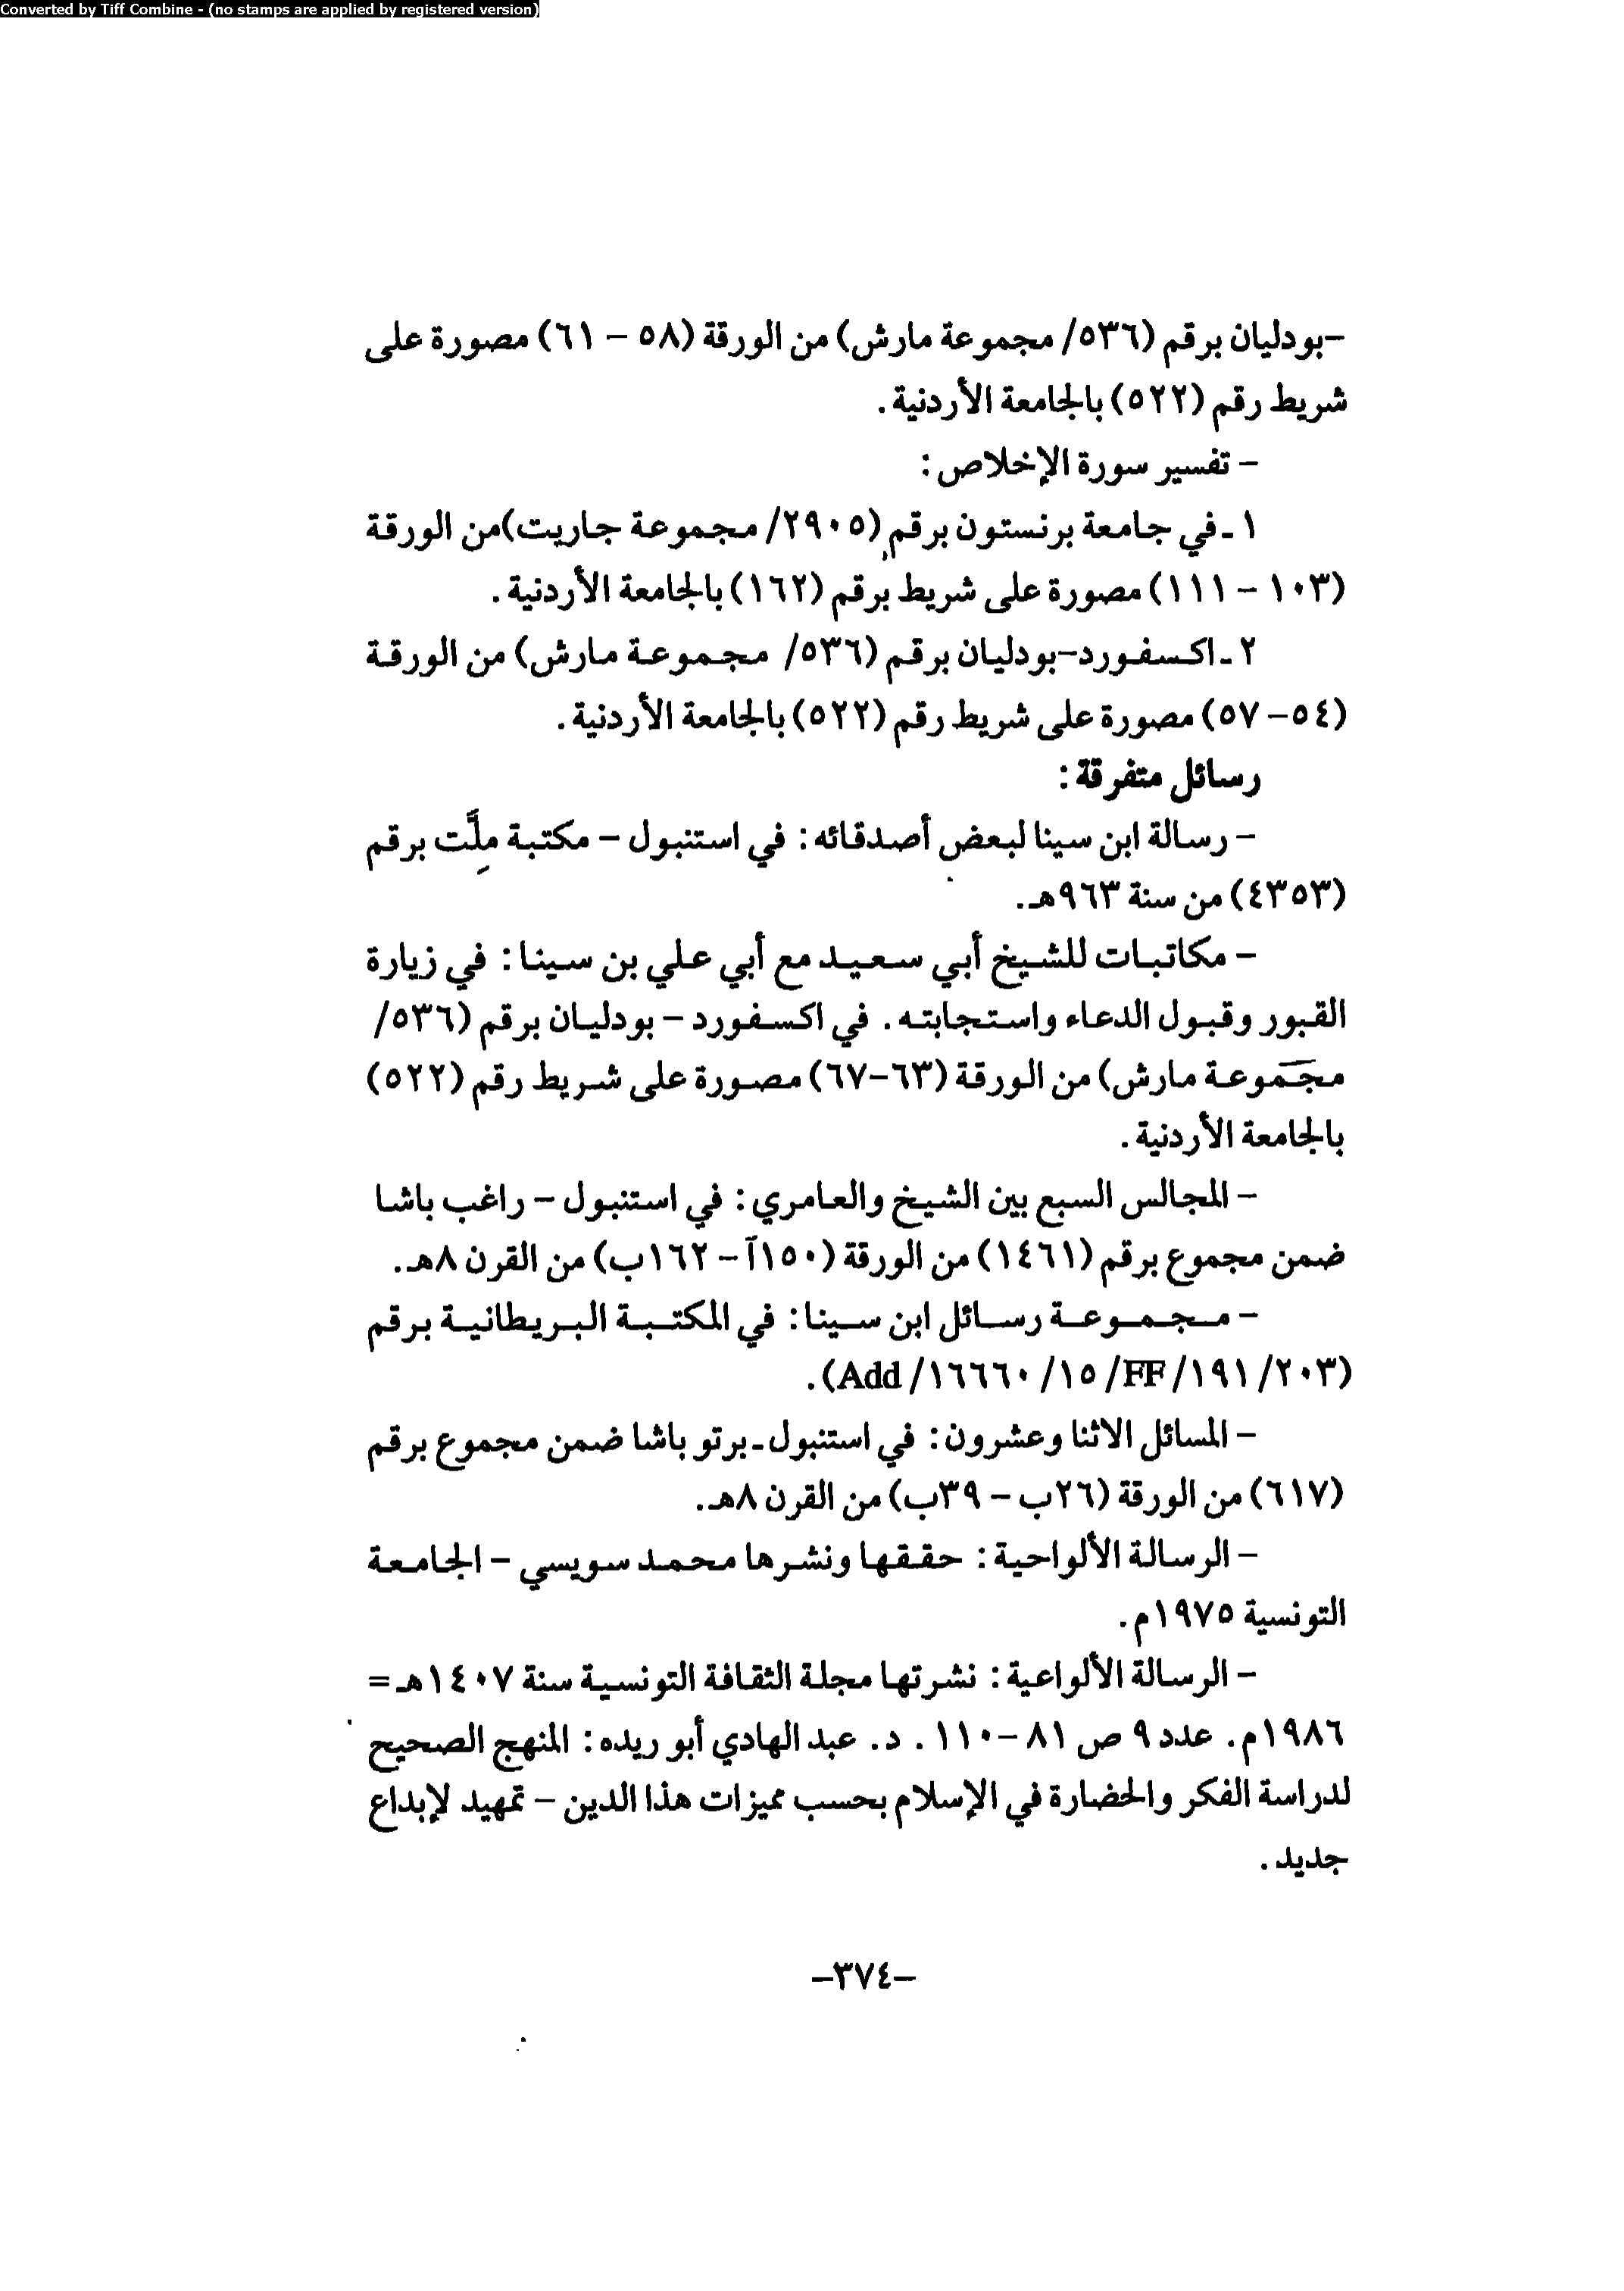 Converted by Tiff Combine - (no stamps are applied by registered version)
-بودليان برقم (٥٣٦/ مجموعة مارش) من الورقة (٥٨ – ٦١) مصورة على
شريط رقم (٥٢٢) بالجامعة الأردنية.
– تفسير سورة الإخلاص:
١ـ في جامعة برنستون برقم (٢٩٠٥/ مجموعة جاريت)من الورقة
(١٠٣ – ١١١) مصورة على شريط برقم (١٦٢) بالجامعة الأردنية.
٢ـ اكسفورد-بودليان برقم (٥٣٦/ مجموعة مارش) من الورقة
(٥٤– ٥٧) مصورة على شريط رقم (٥٢٢) بالجامعة الأردنية.
رسائل متفرقة:
– رسالة ابن سينا لبعض أصدقائه: في استنبول – مكتبة ملَّت برقم
(٤٣٥٣) من سنة ٩٦٣هـ.
– مكاتبات للشيخ أبي سعيد مع أبي علي بن سينا: في زيارة
القبور وقبول الدعاء واستجابته. في اكسفورد – بودليان برقم (٥٣٦/
مجموعة مارش) من الورقة (٦٣–٦٧) مصورة على شريط رقم (٥٢٢)
بالجامعة الأردنية.
– المجالس السبع بين الشيخ والعامري: في استنبول – راغب باشا
ضمن مجموع برقم (١٤٦١) من الورقة (١٥٠آ – ١٦٢ب) من القرن ٨هـ.
– مجموعة رسائل ابن سينا: في المكتبة البريطانية برقم
(Add/١٦٦٦٠/١٥/FF/١٩١/٢٠٣).
– المسائل الاثنا وعشرون: في استنبول ـ برتو باشا ضمن مجموع برقم
(٦١٧) من الورقة (٢٦ب – ٣٩ب) من القرن ٨هـ.
– الرسالة الألواحية: حققها ونشرها محمد سويسي – الجامعة
التونسية ١٩٧٥م.
– الرسالة الألواعية: نشرتها مجلة الثقافة التونسية سنة ١٤٠٧هـ =
١٩٨٦م. عدد ٩ ص ٨١ –١١٠. د. عبد الهادي أبو ريده: المنهج الصحيح
لدراسة الفكر والحضارة في الإسلام بحسب مميزات هذا الدين – تمهيد لإبداع
جديد.
–٣٧٤–